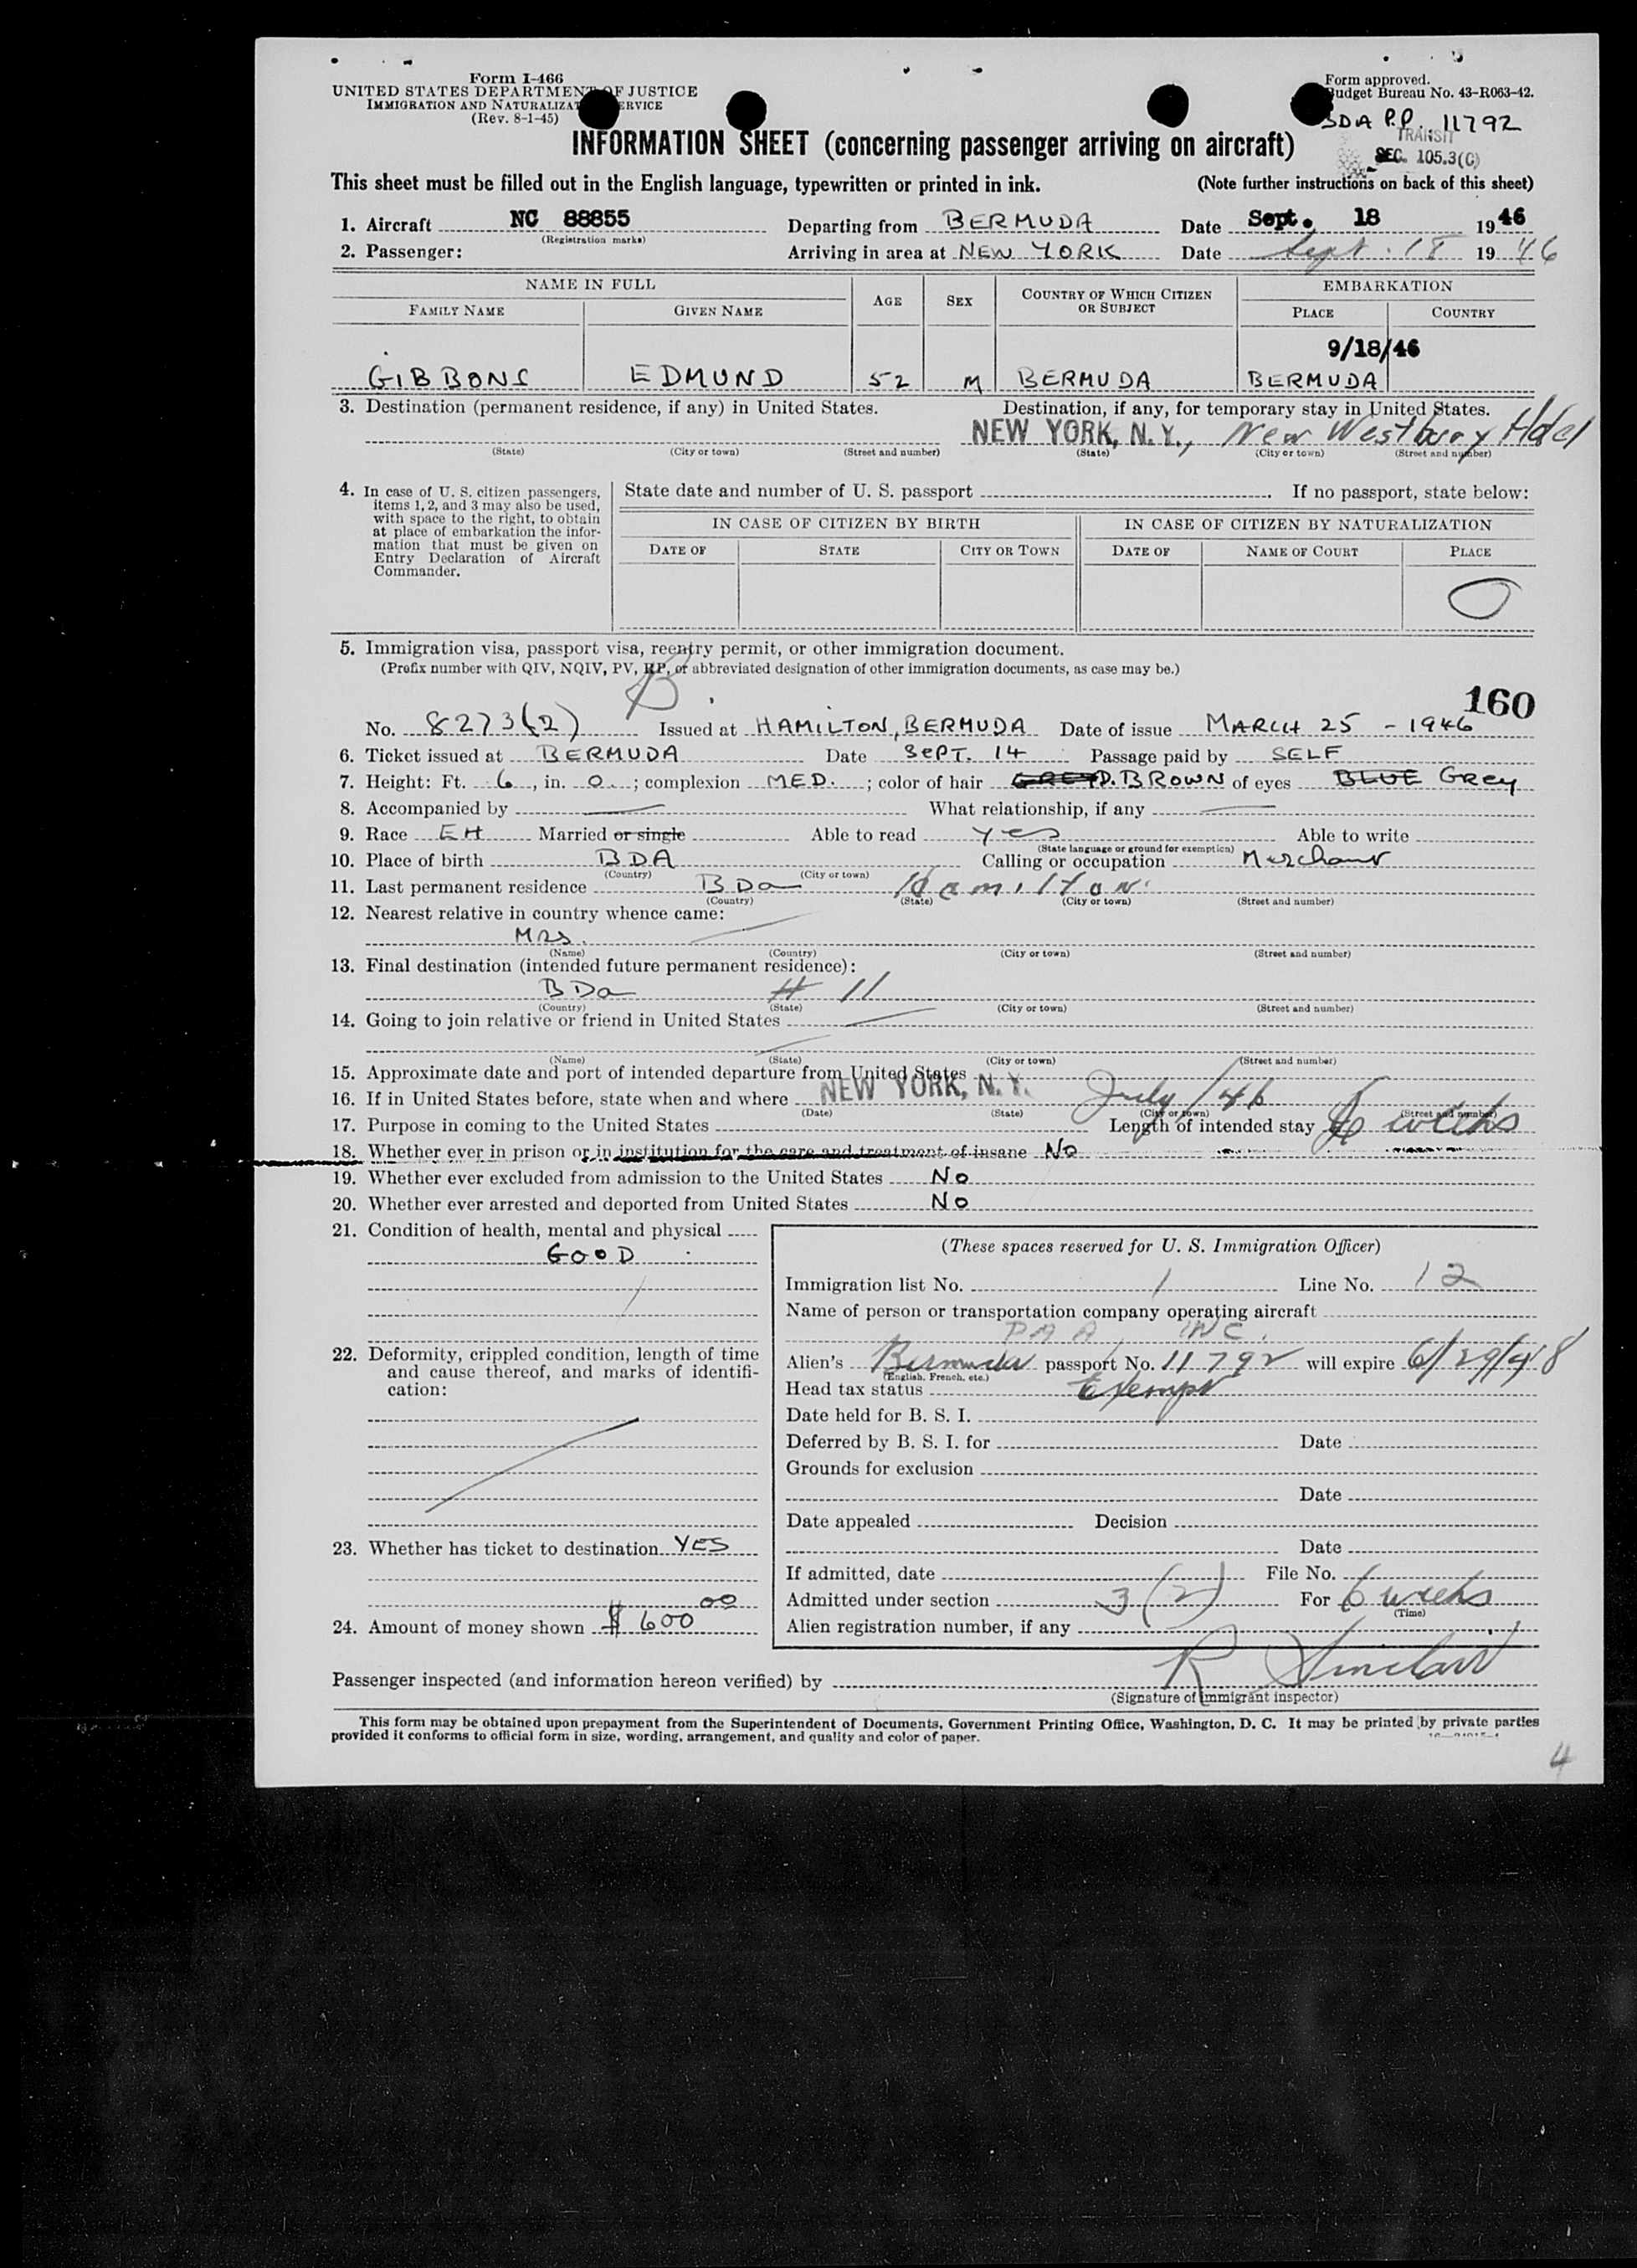 Form I-466
UNITED STATES DEPARTMENT OF JUSTICE
IMMIGRATION AND NATURALIZATION SERVICE
(Rev. 8-1-45)
Form approved.
Budget Bureau No. 43-R063-42.
BDA P.P. 11792
TRANSIT
SEC. 105.3(C)
INFORMATION SHEET (concerning passenger arriving on aircraft)
This sheet must be filled out in the English language, typewritten or printed in ink. (Note further instructions on back of this sheet)
1. Aircraft NC 88855 Departing from BERMUDA Date Sept. 18 1946
(Registration marks)
2. Passenger: Arriving in area at NEW YORK Date Sept. 18 1946
NAME IN FULL AGE SEX COUNTRY OF WHICH CITIZEN OR SUBJECT EMBARKATION
FAMILY NAME GIVEN NAME PLACE COUNTRY
9/18/46
GIBBONS EDMUND 52 M BERMUDA BERMUDA
3. Destination (permanent residence, if any) in United States. Destination, if any, for temporary stay in United States.
NEW YORK, N.Y., New Westbury Hotel
(State) (City or town) (Street and number) (State) (City or town) (Street and number)
4. In case of U. S. citizen passengers, items 1, 2, and 3 may also be used, with space to the right, to obtain at place of embarkation the information that must be given on Entry Declaration of Aircraft Commander.
State date and number of U. S. passport . If no passport, state below:
IN CASE OF CITIZEN BY BIRTH IN CASE OF CITIZEN BY NATURALIZATION
DATE OF STATE CITY OR TOWN DATE OF NAME OF COURT PLACE
5. Immigration visa, passport visa, reentry permit, or other immigration document.
(Prefix number with QIV, NQIV, PV, RP, or abbreviated designation of other immigration documents, as case may be.)
B
160
No. 8273(2) Issued at HAMILTON, BERMUDA Date of issue MARCH 25 - 1946
6. Ticket issued at BERMUDA Date SEPT. 14 Passage paid by SELF
7. Height: Ft. 6, in. 0.; complexion MED.; color of hair GREY D. BROWN of eyes BLUE GREY
8. Accompanied by What relationship, if any
9. Race EH Married or single Able to read Yes Able to write
(State language or ground for exemption)
10. Place of birth BDA Calling or occupation Merchant
(Country) (City or town)
11. Last permanent residence BDa Hamilton
(Country) (State) (City or town) (Street and number)
12. Nearest relative in country whence came:
Mrs.
(Name) (Country) (City or town) (Street and number)
13. Final destination (intended future permanent residence):
BDa # 11
(Country) (State) (City or town) (Street and number)
14. Going to join relative or friend in United States
(Name) (State) (City or town) (Street and number)
15. Approximate date and port of intended departure from United States
16. If in United States before, state when and where NEW YORK, N.Y. July/46
(Date) (State) (City or town) (Street and number)
17. Purpose in coming to the United States Length of intended stay 6 weeks
18. Whether ever in prison or in institution for the care and treatment of insane No
19. Whether ever excluded from admission to the United States No
20. Whether ever arrested and deported from United States No
21. Condition of health, mental and physical
GOOD
22. Deformity, crippled condition, length of time and cause thereof, and marks of identification:
23. Whether has ticket to destination YES
24. Amount of money shown $ 600 00
(These spaces reserved for U. S. Immigration Officer)
Immigration list No. 1 Line No. 12
Name of person or transportation company operating aircraft
PAA, INC.
Alien's Bermuda passport No. 11792 will expire 6/29/48
(English, French, etc.)
Head tax status Exempt
Date held for B. S. I.
Deferred by B. S. I. for Date
Grounds for exclusion
Date
Date appealed Decision
Date
If admitted, date File No.
Admitted under section 3(2) For 6 weeks
(Time)
Alien registration number, if any
Passenger inspected (and information hereon verified) by R Sinclair
(Signature of immigrant inspector)
This form may be obtained upon prepayment from the Superintendent of Documents, Government Printing Office, Washington, D. C. It may be printed by private parties
provided it conforms to official form in size, wording, arrangement, and quality and color of paper.
4